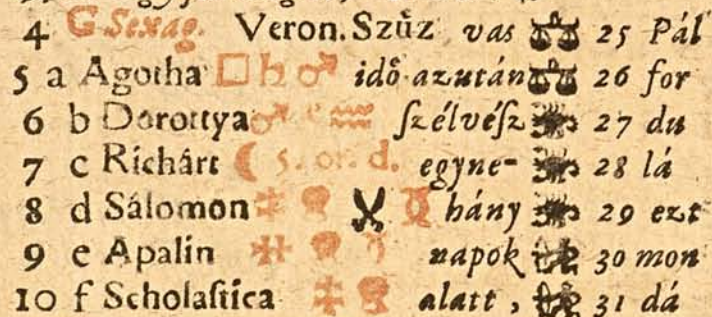 4 G Sexag. Veron. Szűz vas ♎ 25 Pál
5 a Agotha □ ♄ ♂ idő azután ♎ 26 for
6 b Dorottya ♂ ♒ ſzélvéſz ♏ 27 du
7 c Richárt ☾ 5. or. d. egyne- ♏ 28 lá
8 d Sálomon hány ♏ 29 ezt
9 e Apalin napok ♐ 30 mon
10 f Scholaſtica alatt, ♐ 31 dá